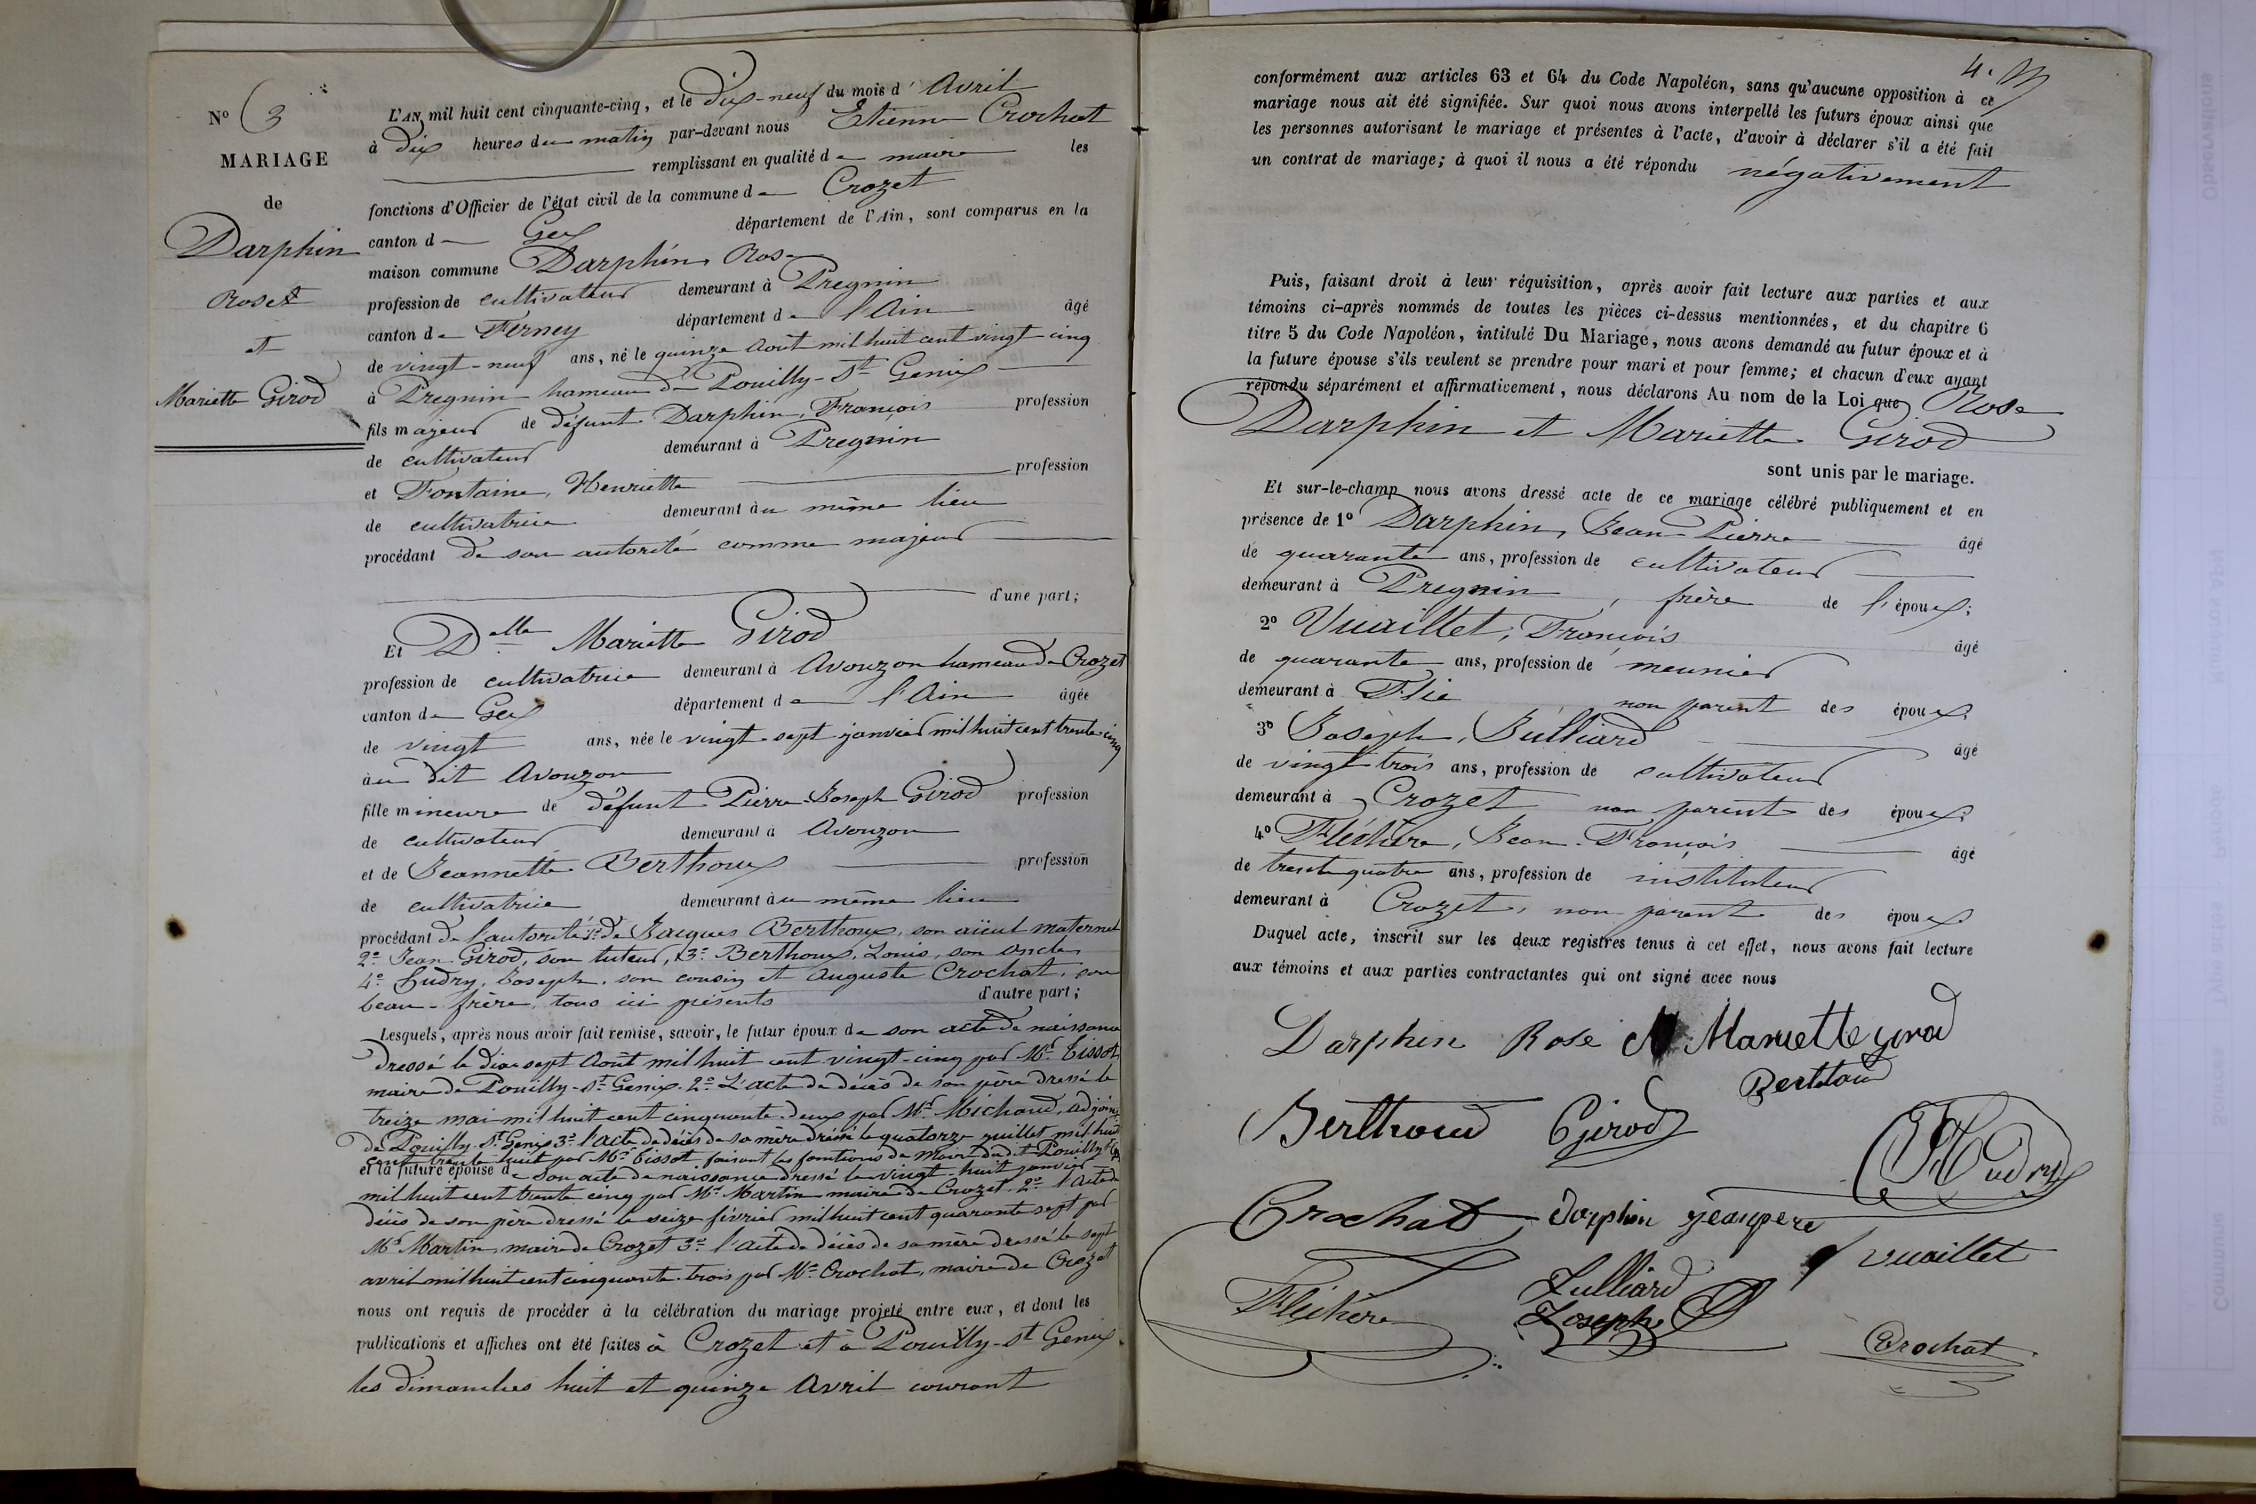 N° 3
MARIAGE
de
Darphin
Rose
et
Mariette Girod
L'AN mil huit cent cinquante-cinq, et le dix-neuf du mois d' Avril
à dix heures du matin par-devant nous Etienne Crochat
remplissant en qualité de maire les
fonctions d'Officier de l'état civil de la commune de Crozet
canton de Gex département de l'Ain, sont comparus en la
maison commune Darphin, Rose
profession de cultivateur demeurant à Pregnin
canton de Ferney département de l'Ain âgé
de vingt-neuf ans, né le quinze Août mil huit cent vingt cinq
à Pregnin hameau de Pouilly-St Genix
fils majeur de défunt Darphin, François profession
de cultivateur demeurant à Pregnin
et Fontaine, Henriette profession
de cultivatrice demeurant au même lieu
procédant de son autorité comme majeur
d'une part;
Et Delle Mariette Girod
profession de cultivatrice demeurant à Avouzon hameau de Crozet
canton de Gex département de l'Ain âgée
de vingt ans, née le vingt-sept janvier mil huit cent trente cinq
au dit Avouzon
fille mineure de défunt Pierre-Joseph Girod profession
de cultivateur demeurant à Avouzon
et de Jeannette Berthoux profession
de cultivatrice demeurant au même lieu
procédant de l'autorité 1° de Jacques Berthoux, son aïeul maternel
2° Jean Girod, son tuteur, 3° Berthoux, Louis, son oncle
4° Hudry, Joseph, son cousin et Auguste Crochat, son
beau-frère, tous ici présents d'autre part;
Lesquels, après nous avoir fait remise, savoir, le futur époux de son acte de naissance
dressé le dix sept Août mil huit cent vingt-cinq par Mr Tissot
maire de Pouilly-St Genix. 2° L'acte de décès de son père dressé le
treize mai mil huit cent cinquante-deux par Mr Michaud, adjoint
de Pouilly-St Genix 3° l'acte de décès de sa mère dressé le quatorze juillet mil huit
cent trente huit par Mr Tissot faisant les fonctions de Maire du dit Pouilly St Genix
et la future épouse de son acte de naissance dressé le vingt-huit janvier
mil huit cent trente cinq par Mr Martin maire de Crozet. 2° l'acte de
décès de son père dressé le seize février mil huit cent quarante sept par
Mr Martin maire de Crozet 3° l'acte de décès de sa mère dressé le sept
avril mil huit cent cinquante-trois par Mr Crochat, maire de Crozet
nous ont requis de procéder à la célébration du mariage projeté entre eux, et dont les
publications et affiches ont été faites à Crozet et à Pouilly-St Genix
les dimanches huit et quinze Avril courant
4.
conformément aux articles 63 et 64 du Code Napoléon, sans qu'aucune opposition à ce
mariage nous ait été signifiée. Sur quoi nous avons interpellé les futurs époux ainsi que
les personnes autorisant le mariage et présentes à l'acte, d'avoir à déclarer s'il a été fait
un contrat de mariage; à quoi il nous a été répondu négativement
Puis, faisant droit à leur réquisition, après avoir fait lecture aux parties et aux
témoins ci-après nommés de toutes les pièces ci-dessus mentionnées, et du chapitre 6
titre 5 du Code Napoléon, intitulé Du Mariage, nous avons demandé au futur époux et à
la future épouse s'ils veulent se prendre pour mari et pour femme; et chacun d'eux ayant
répondu séparément et affirmativement, nous déclarons Au nom de la Loi que Rose
Darphin et Mariette Girod
sont unis par le mariage.
Et sur-le-champ nous avons dressé acte de ce mariage célébré publiquement et en
présence de 1° Darphin, Jean-Pierre âgé
de quarante ans, profession de cultivateur
demeurant à Pregnin, frère de l'époux;
2° Vuaillet, François âgé
de quarante ans, profession de meunier
demeurant à Flie non parent des époux,
3° Joseph, Julliard âgé
de vingt trois ans, profession de cultivateur
demeurant à Crozet non parent des époux,
4° Fléchère, Jean-François âgé
de trente quatre ans, profession de instituteur
demeurant à Crozet, non parent des époux
Duquel acte, inscrit sur les deux registres tenus à cet effet, nous avons fait lecture
aux témoins et aux parties contractantes qui ont signé avec nous
Darphin Rose Mariette girod
Berthoud Girod
Hudry
Crochat Darphin jeanpere
Vuaillet
Fléchère Julliard
Joseph
Crochat